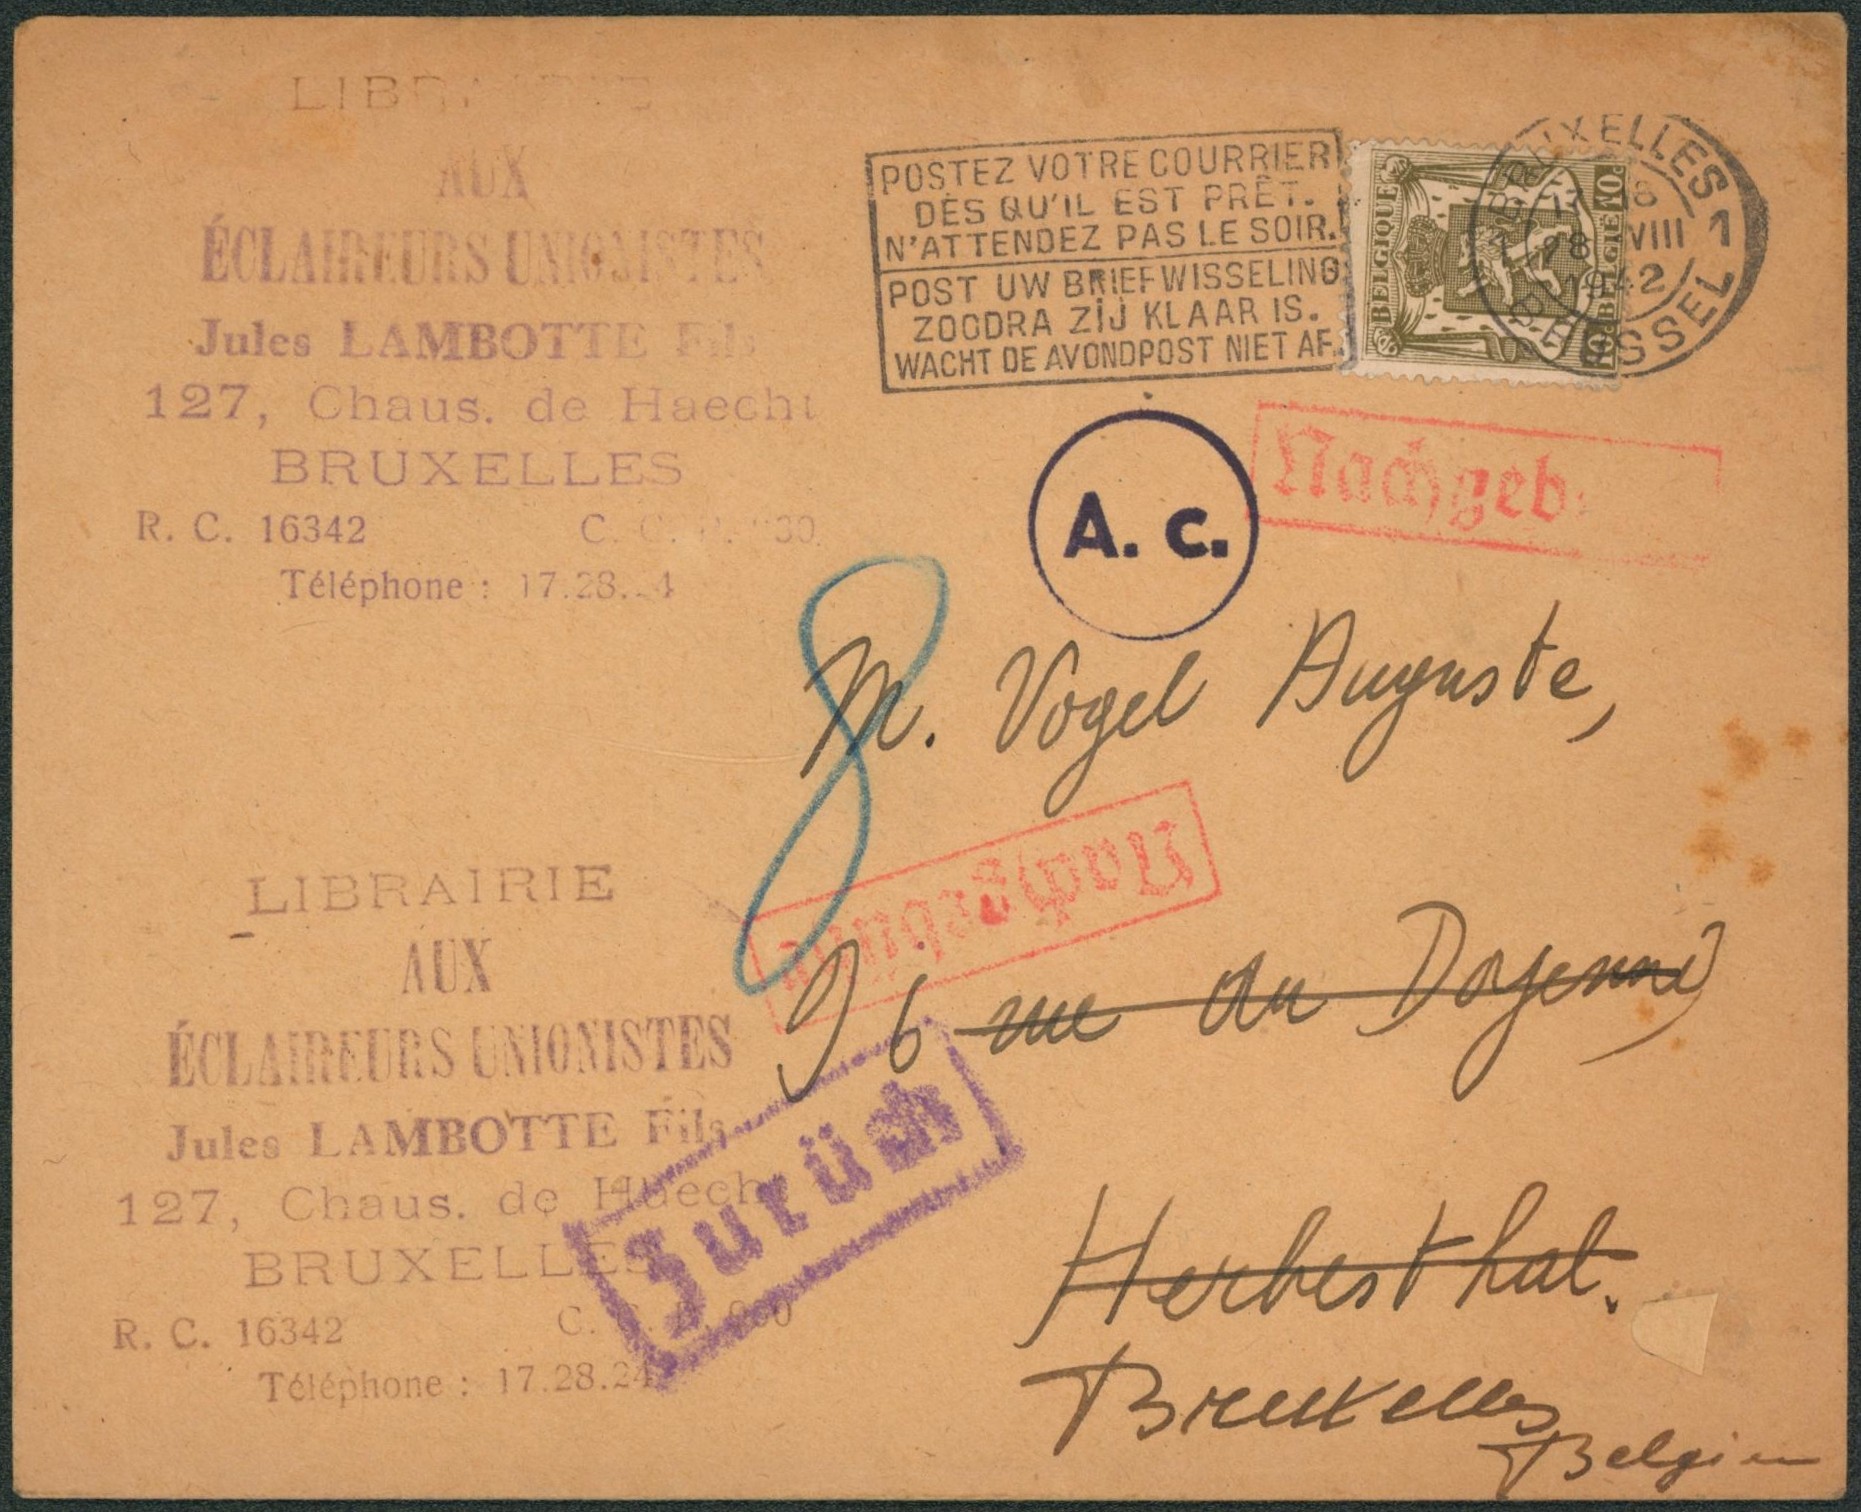 LIBRAIRIE
AUX
ÉCLAIREURS UNIONISTES
Jules LAMBOTTE Fils
127, Chaus. de Haecht
BRUXELLES
R. C. 16342 C. C.
Téléphone : 17.28.24
POSTEZ VOTRE COURRIER
DÈS QU'IL EST PRÊT.
N'ATTENDEZ PAS LE SOIR.
POST UW BRIEFWISSELING
ZOODRA ZIJ KLAAR IS.
WACHT DE AVONDPOST NIET AF.
BELGIQUE 10c BELGIË 10c
BRUXELLES 1
28 VIII
1942
BRUSSEL
A. c.
Nachgeb.
8
M. Vogel Auguste,
Nachgebühr
96 rue du Doyenné
Herbesthal.
Bruxelles
Belgien
Zurück
LIBRAIRIE
AUX
ÉCLAIREURS UNIONISTES
Jules LAMBOTTE Fils
127, Chaus. de Haecht
BRUXELLES
R. C. 16342 C.
Téléphone : 17.28.24